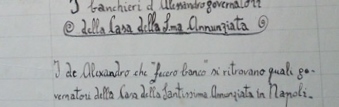 I banchieri d'Alessandro governatori
della Casa della S.ma Annunziata
I de Alexandro che "fecero banco" si ritrovano quali go-
vernatori della Casa della Santissima Annunziata in Napoli.